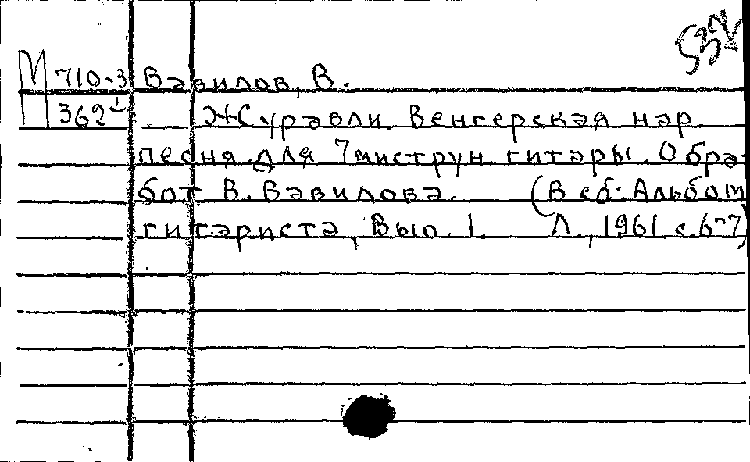 М 710-3 Вавилов, В.
362 Журавли. Венгерская нар.
песня для 7миструн гитары. Обра-
бот В. Вавилова. (В сб: Альбом
гитариста, Вып. 1. Л., 1961 с.6-7)